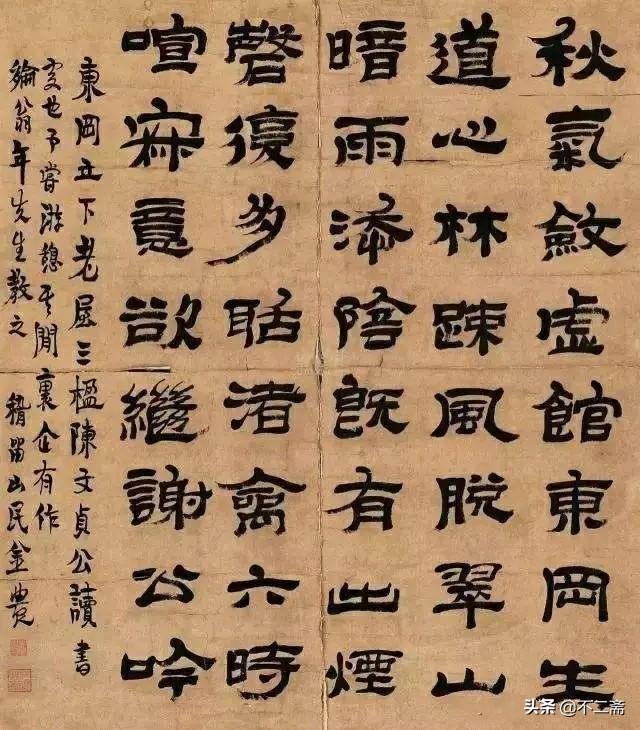 秋氣斂虛館東岡生
道心林疎風脫翠山
暗雨添陰既有出煙
磬復多聒渚禽六時
喧寂意欲繼謝公吟
東岡丘下老屋三楹陳文貞公讀書
處也予嘗游憩其閒褱企有作
綸翁年先生教之 稽留山民金農
头条@不二斋